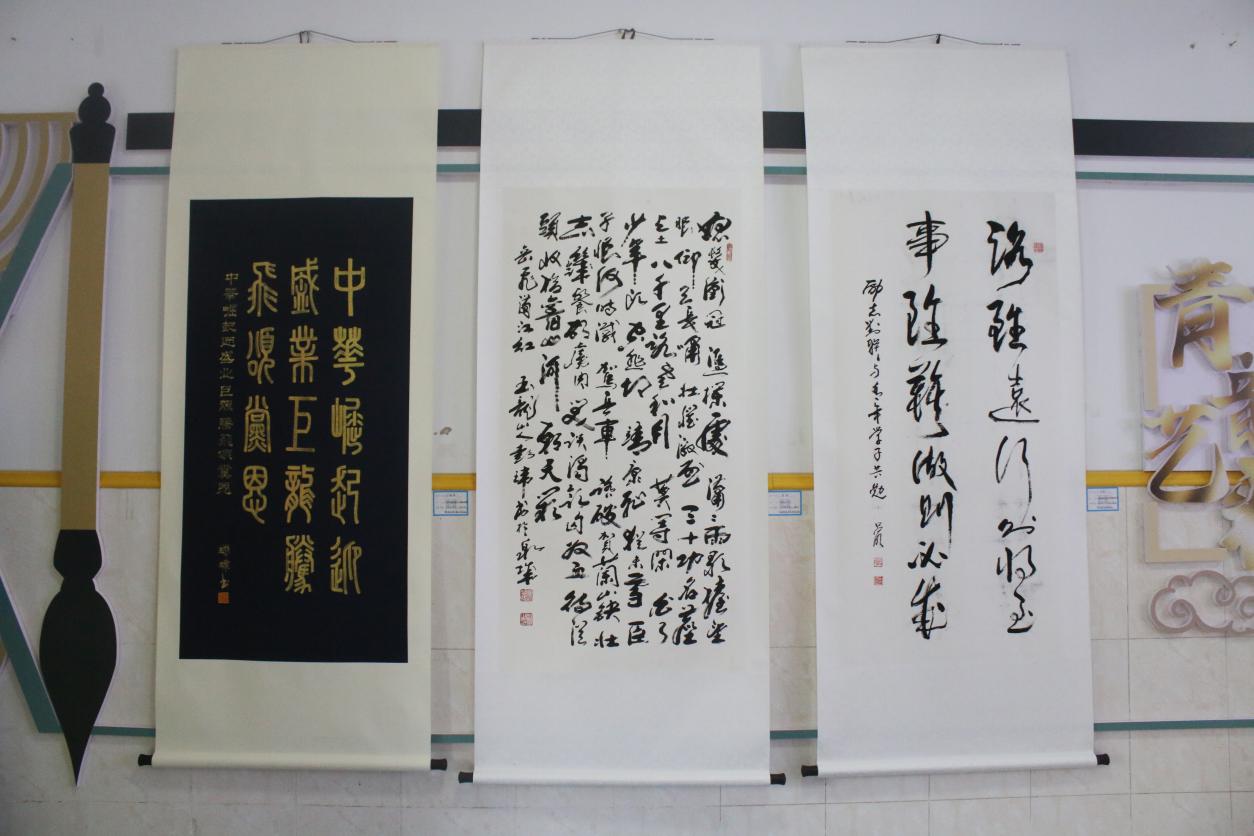 中華崛起迎
盛業巨龍騰
飛頌黨恩
中華崛起迎盛业巨龍騰飛頌黨恩
怒髮衝冠凭欄處瀟〻雨歇抬望
眼仰天長嘯壮懷激烈三十功名塵
与土八千里路雲和月莫等闲白了
少年头空悲切靖康耻猶未雪臣
子恨何時滅駕長車踏破賀蘭山缺壮
志饑餐胡虜肉笑談渴飲匈奴血待從
頭收拾舊山河朝天闕
岳飛满江红
路雖遠行则將至
事雖難做則必成
勵志對聯与青年学子共勉
青
艺